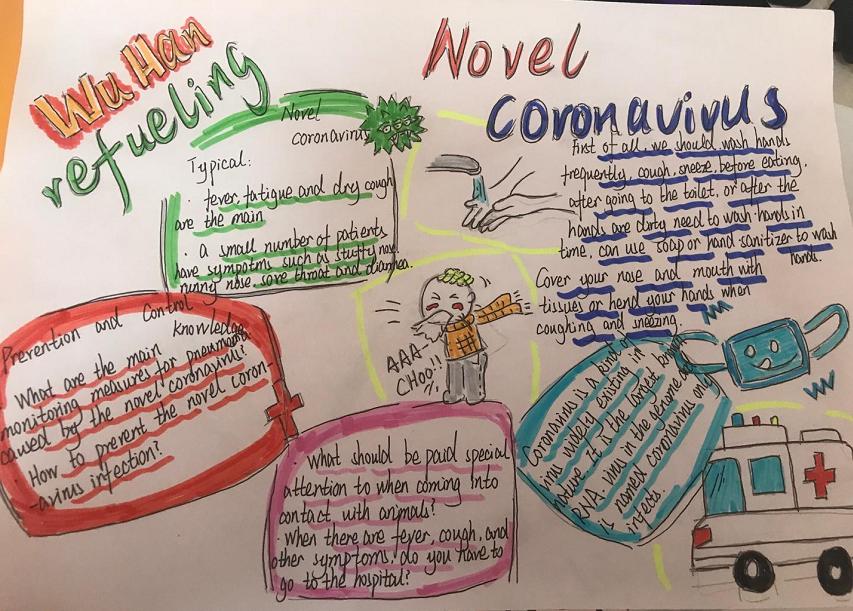 Wu Han
refueling
Novel
Coronavirus
Novel
coronavirus
Typical:
· fever, fatigue and dry cough
are the main
· a small number of patients
have sympotms such as stuffy nose
runny nose, sore throat and diarrhea.
First of all, we should wash hands
frequently, cough, sneeze, before eating,
after going to the toilet, or after the
hands are dirty need to wash hands in
time, can use soap or hand sanitizer to wash
hands.
Cover your nose and mouth with
tissues or hend your hands when
coughing and sneezing.
AAA-
CHOO!!
Prevention and Control
knowledge
What are the main
monitoring measures for pneumonia
caused by the novel coronavirus?
How to prevent the novel coron
-avirus infection?
What should be paid special
attention to when coming into
contact with animals?
When there are fever, cough, and
other symptoms, do you have to
go to the hospital?
Coronavirus is a kind of
virus widely existing in
nature. it is the largest known
RNA virus in the genome
is named coronavirus only
infects.